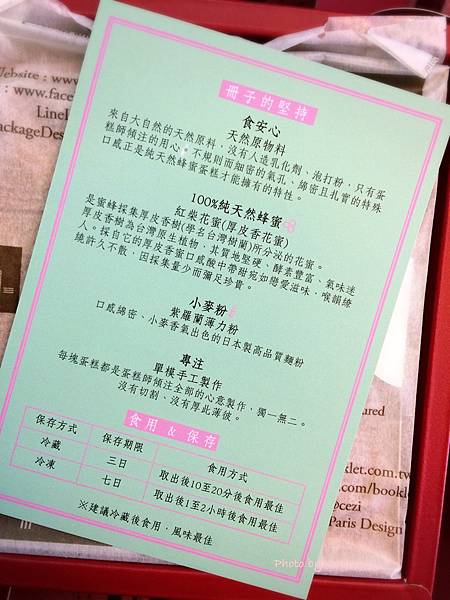 Website : www
: www.face
LineI
PackageDes
冊子的堅持
食安心
天然原物料
來自大自然的天然原料，沒有人造乳化劑、泡打粉，只有蛋
糕師傾注的用心。不規則而細密的氣孔、綿密且扎實的特殊
口感正是純天然蜂蜜蛋糕才能擁有的特性。
100%純天然蜂蜜
紅柴花蜜(厚皮香花蜜)
是蜜蜂採集厚皮香樹(學名台灣樹蘭)所分泌的花蜜。
厚皮香樹為台灣原生植物，其質地堅硬、酵素豐富、氣味迷
人。採自它的厚皮香蜜口感酸中帶甜宛如戀愛滋味，喉韻繚
繞許久不散，因採集量少而彌足珍貴。
小麥粉
紫羅蘭薄力粉
口感綿密、小麥香氣出色的日本製高品質麵粉
專注
單模手工製作
每塊蛋糕都是蛋糕師傾注全部的心意製作，獨一無二。
沒有切割、沒有厚此薄彼。
食用 & 保存
保存方式 保存期限 食用方式
冷藏 三日 取出後10至20分後食用最佳
冷凍 七日 取出後1至2小時後食用最佳
※建議冷藏後食用，風味最佳
ared
klet.com.tw
com/bookl
@cezi
Paris Design
Photo by